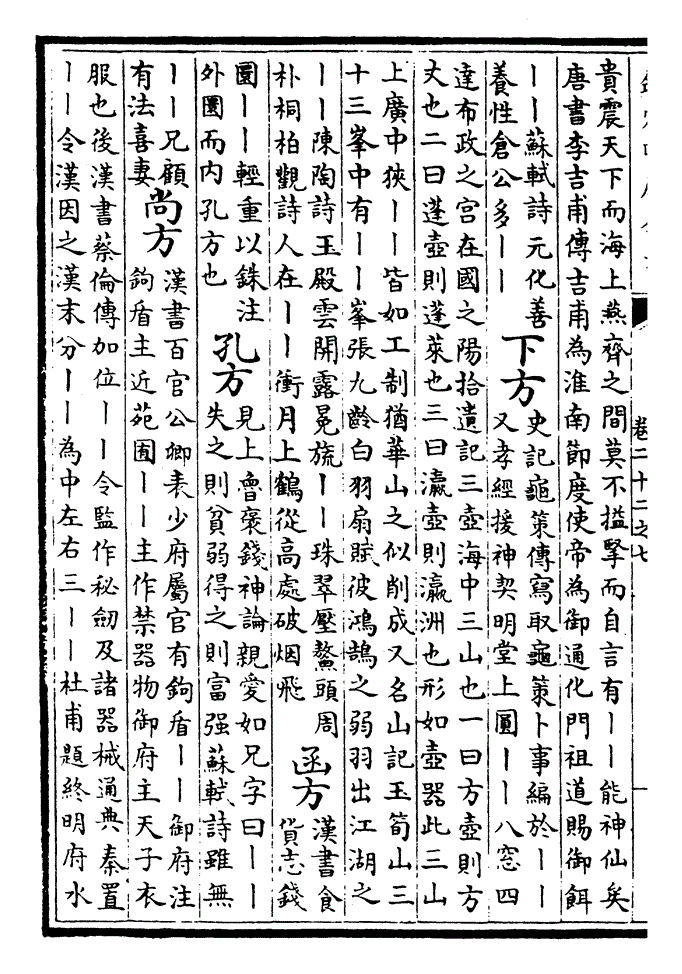 卷二十二之七
貴震天下而海上燕齊之間莫不搤掔而自言有丨丨能神仙矣
唐書李吉甫傳吉甫為淮南節度使帝為御通化門祖道賜御餌
丨丨蘇軾詩元化善
養性倉公多丨丨
下方
史記龜策傳寫取龜策卜事編於丨丨
又孝經援神契明堂上圓丨丨八窓四
達布政之宫在國之陽拾遺記三壺海中三山也一曰方壺則方
丈也二曰蓬壺則蓬萊也三曰瀛壺則瀛洲也形如壺器此三山
上廣中狹丨丨皆如工制猶華山之似削成又名山記玉笥山三
十三峯中有丨丨峯張九齡白羽扇賦彼鴻鵠之弱羽出江湖之
丨丨陳陶詩玉殿雲開露冕旒丨丨珠翠壓鰲頭周
朴桐柏觀詩人在丨丨衝月上鶴從高處破烟飛
函方
漢書食
貨志錢
圜丨丨輕重以銖注
外圜而内孔方也
孔方
見上魯褒錢神論親愛如兄字曰丨丨
失之則貧弱得之則富强蘇軾詩雖無
丨丨兄顧
有法喜妻
尚方
漢書百官公卿表少府屬官有鉤盾丨丨御府注
鉤盾主近苑囿丨丨主作禁器物御府主天子衣
服也後漢書蔡倫傳加位丨丨令監作秘劒及諸器械通典秦置
丨丨令漢因之漢末分丨丨為中左右三丨丨杜甫題終明府水